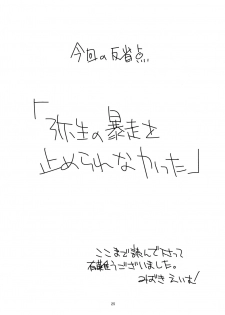 今回の反省点
「弥生の暴走を
止められなかった」
ここまで読んで下さって
有難うございました。
みずきえいむ!
20